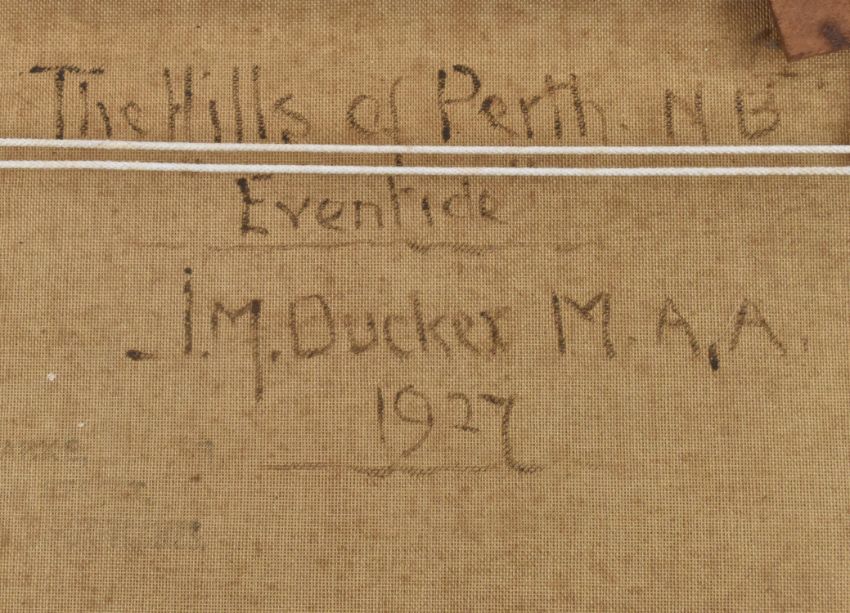 The Hills of Perth. N B
Eventide
J.M. Ducker M.A.A.
1927